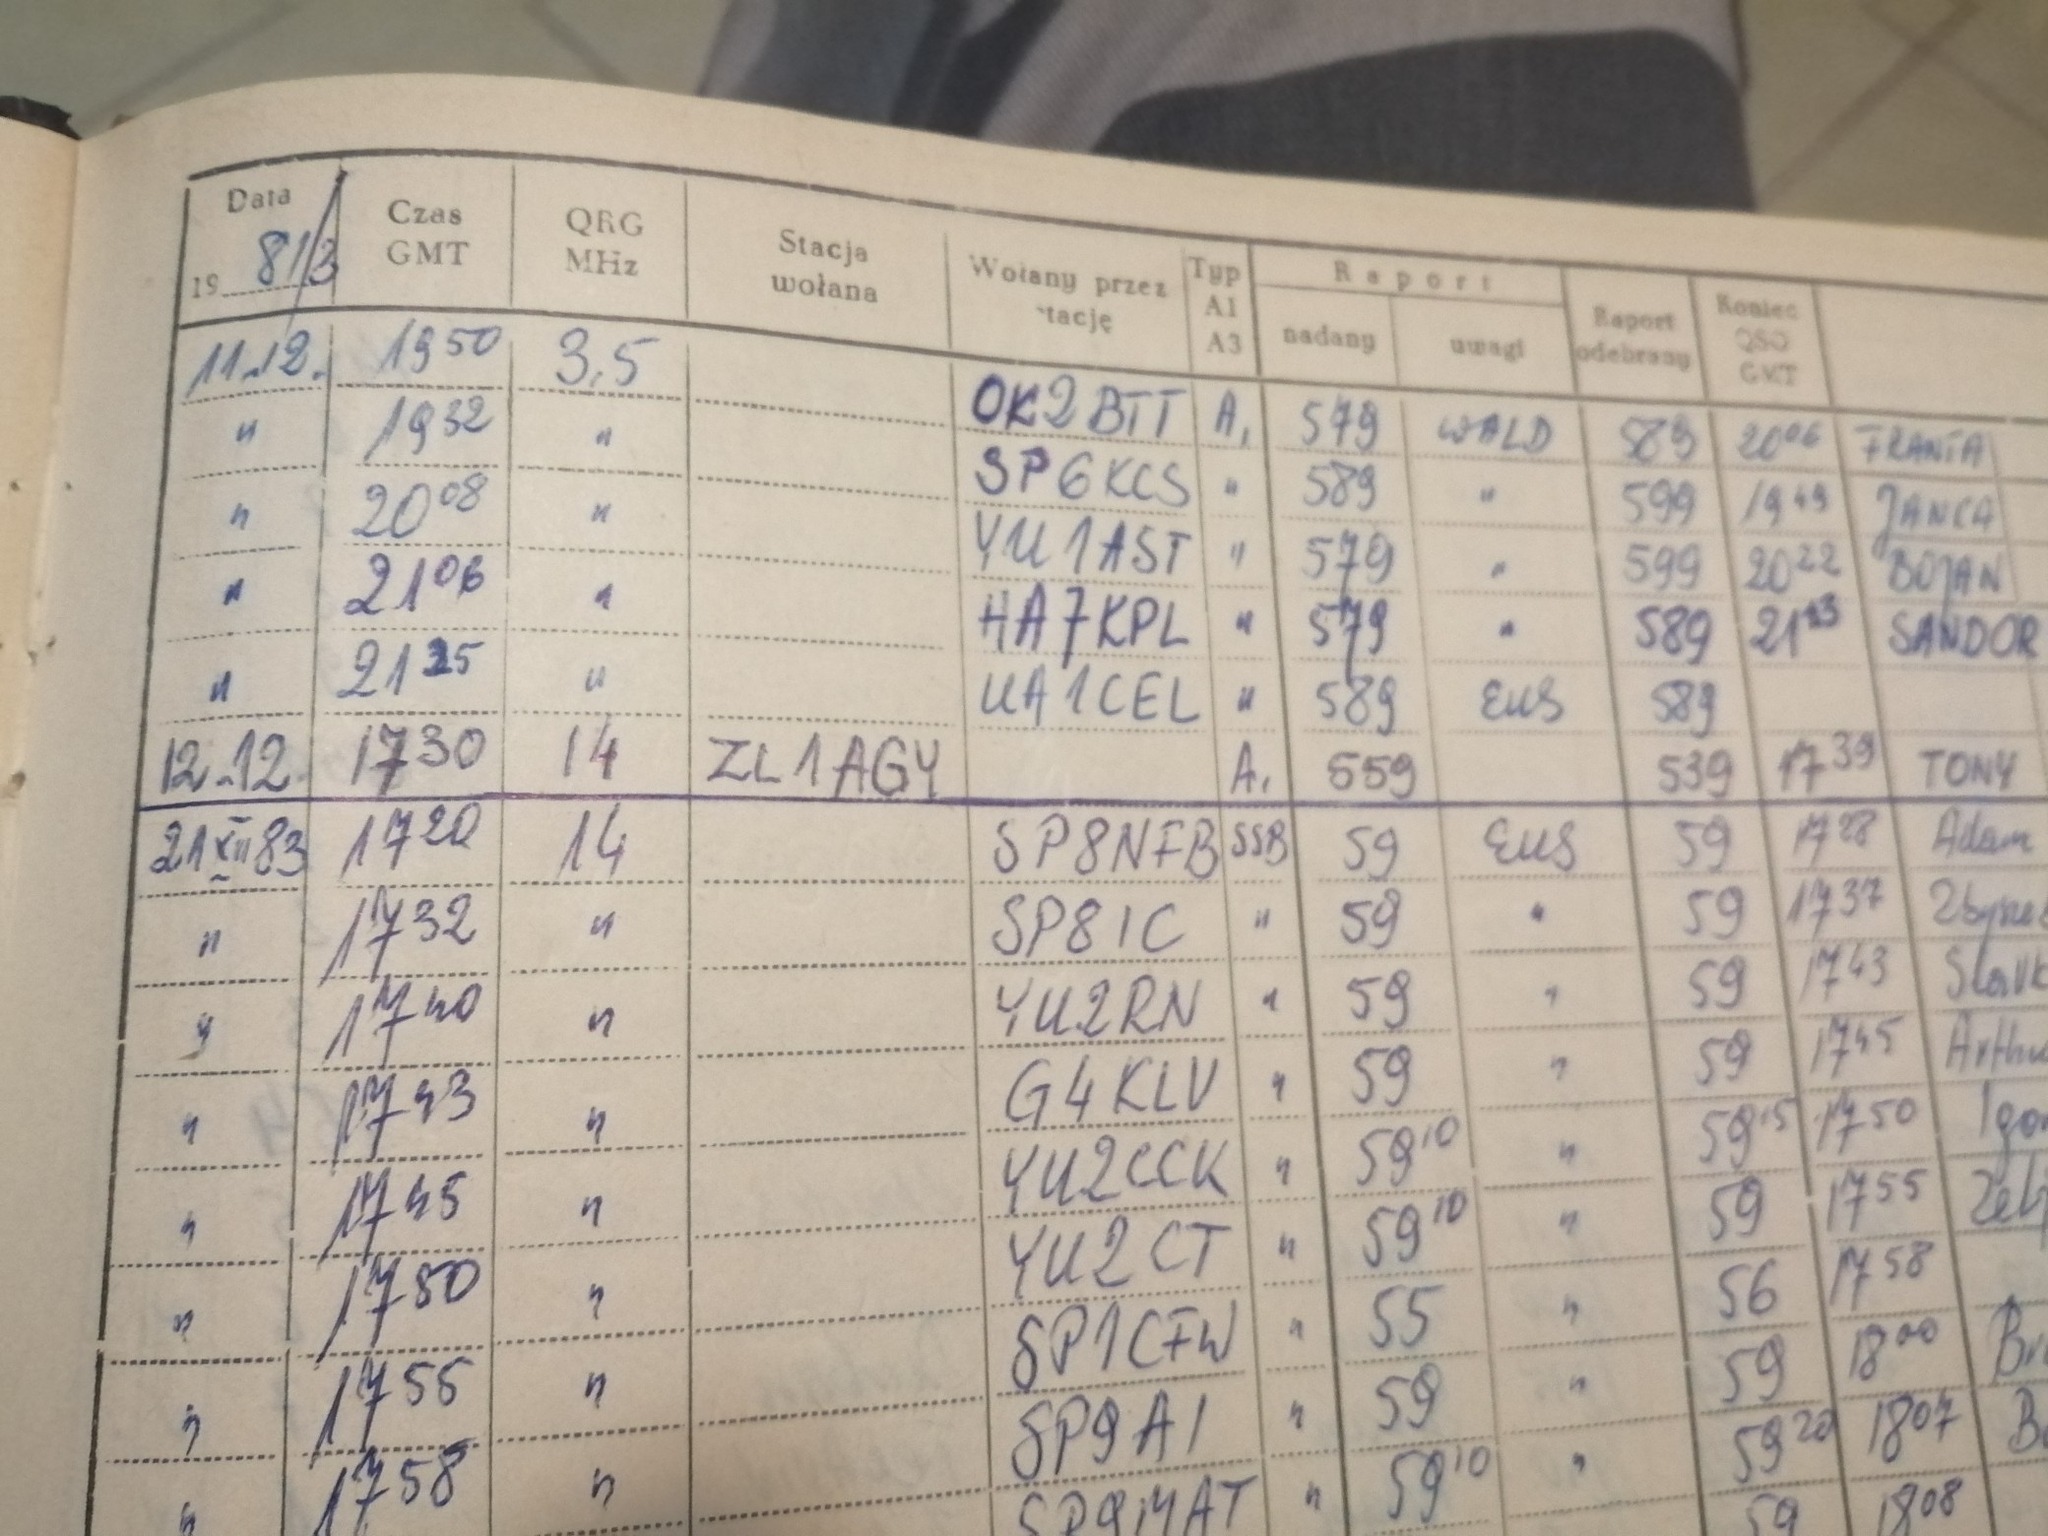 Data 19 81/3 Czas GMT QRG MHz Stacja wołana Wołany przez stację Typ A1 A3 Raport nadany uwagi Raport odebrany Koniec QSO GMT
11.12. 19 50 3,5 OK2BTT A1 579 WALD 589 20 06 FRANTA
" 19 32 " SP6KCS " 589 " 599 19 49 JANCA
" 20 08 " YU1AST " 579 " 599 20 22 BOJAN
" 21 06 " HA7KPL " 579 " 589 21 23 SANDOR
" 21 25 " UA1CEL " 589 EUS 589
12.12. 17 30 14 ZL1AGY A1 559 539 17 39 TONY
21 XII 83 17 20 14 SP8NFB SSB 59 EUS 59 17 28 Adam
" 17 32 " SP8IC " 59 " 59 17 37
" 17 40 " YU2RN " 59 " 59 17 43
" 17 43 " G4KLV " 59 " 59 17 45
" 17 45 " YU2CCK " 59 10 " 59 15 17 50
" 17 50 " YU2CT " 59 10 " 59 17 55
" 17 55 " SP1CFW " 55 " 56 17 58
" 17 58 " SP9AI " 59 " 59 18 00
SP9MAT " 59 10 " 59 20 18 07
59 18 08